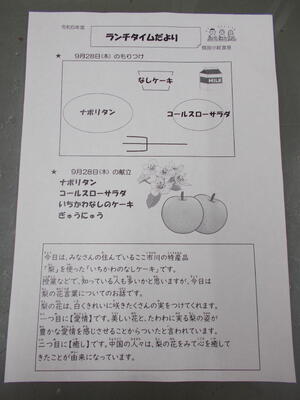 令和5年度
ランチタイムだより
★ 9月28日(木)のもりつけ
なしケーキ
MILK
ナポリタン
コールスローサラダ
★ 9月28日(木)の献立
ナポリタン
コールスローサラダ
いちかわなしのケーキ
ぎゅうにゅう
今日は、みなさんの住んでいるここ市川の特産品
「梨」を使った「いちかわのなしケーキ」です。
授業などで、知っている人も多いかと思いますが、今日は
梨の花言葉についてのお話です。
梨の花は、白くきれいに咲きたくさんの実をつけてくれます。
一つ目に【愛情】です。美しい花と、たわわに実る梨の姿が
豊かな愛情を感じさせることからついたと言われています。
二つ目に【癒し】です。中国の人々は、梨の花をみて心を癒して
きたことが由来になっています。